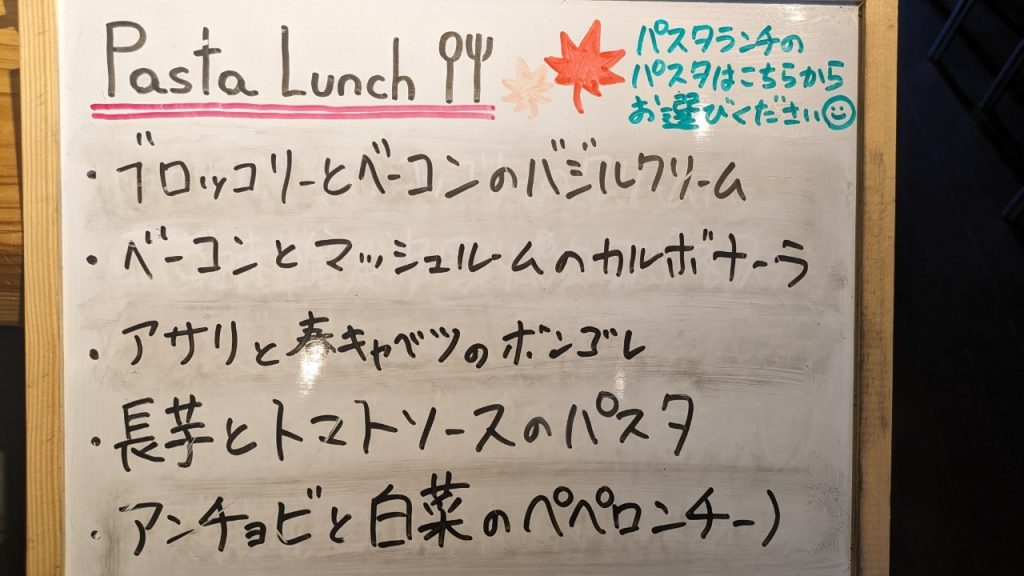 Pasta Lunch
パスタランチの
パスタはこちらから
お選びください
・ブロッコリーとベーコンのバジルクリーム
・ベーコンとマッシュルームのカルボナーラ
・アサリと春キャベツのボンゴレ
・長芋とトマトソースのパスタ
・アンチョビと白菜のペペロンチーノ